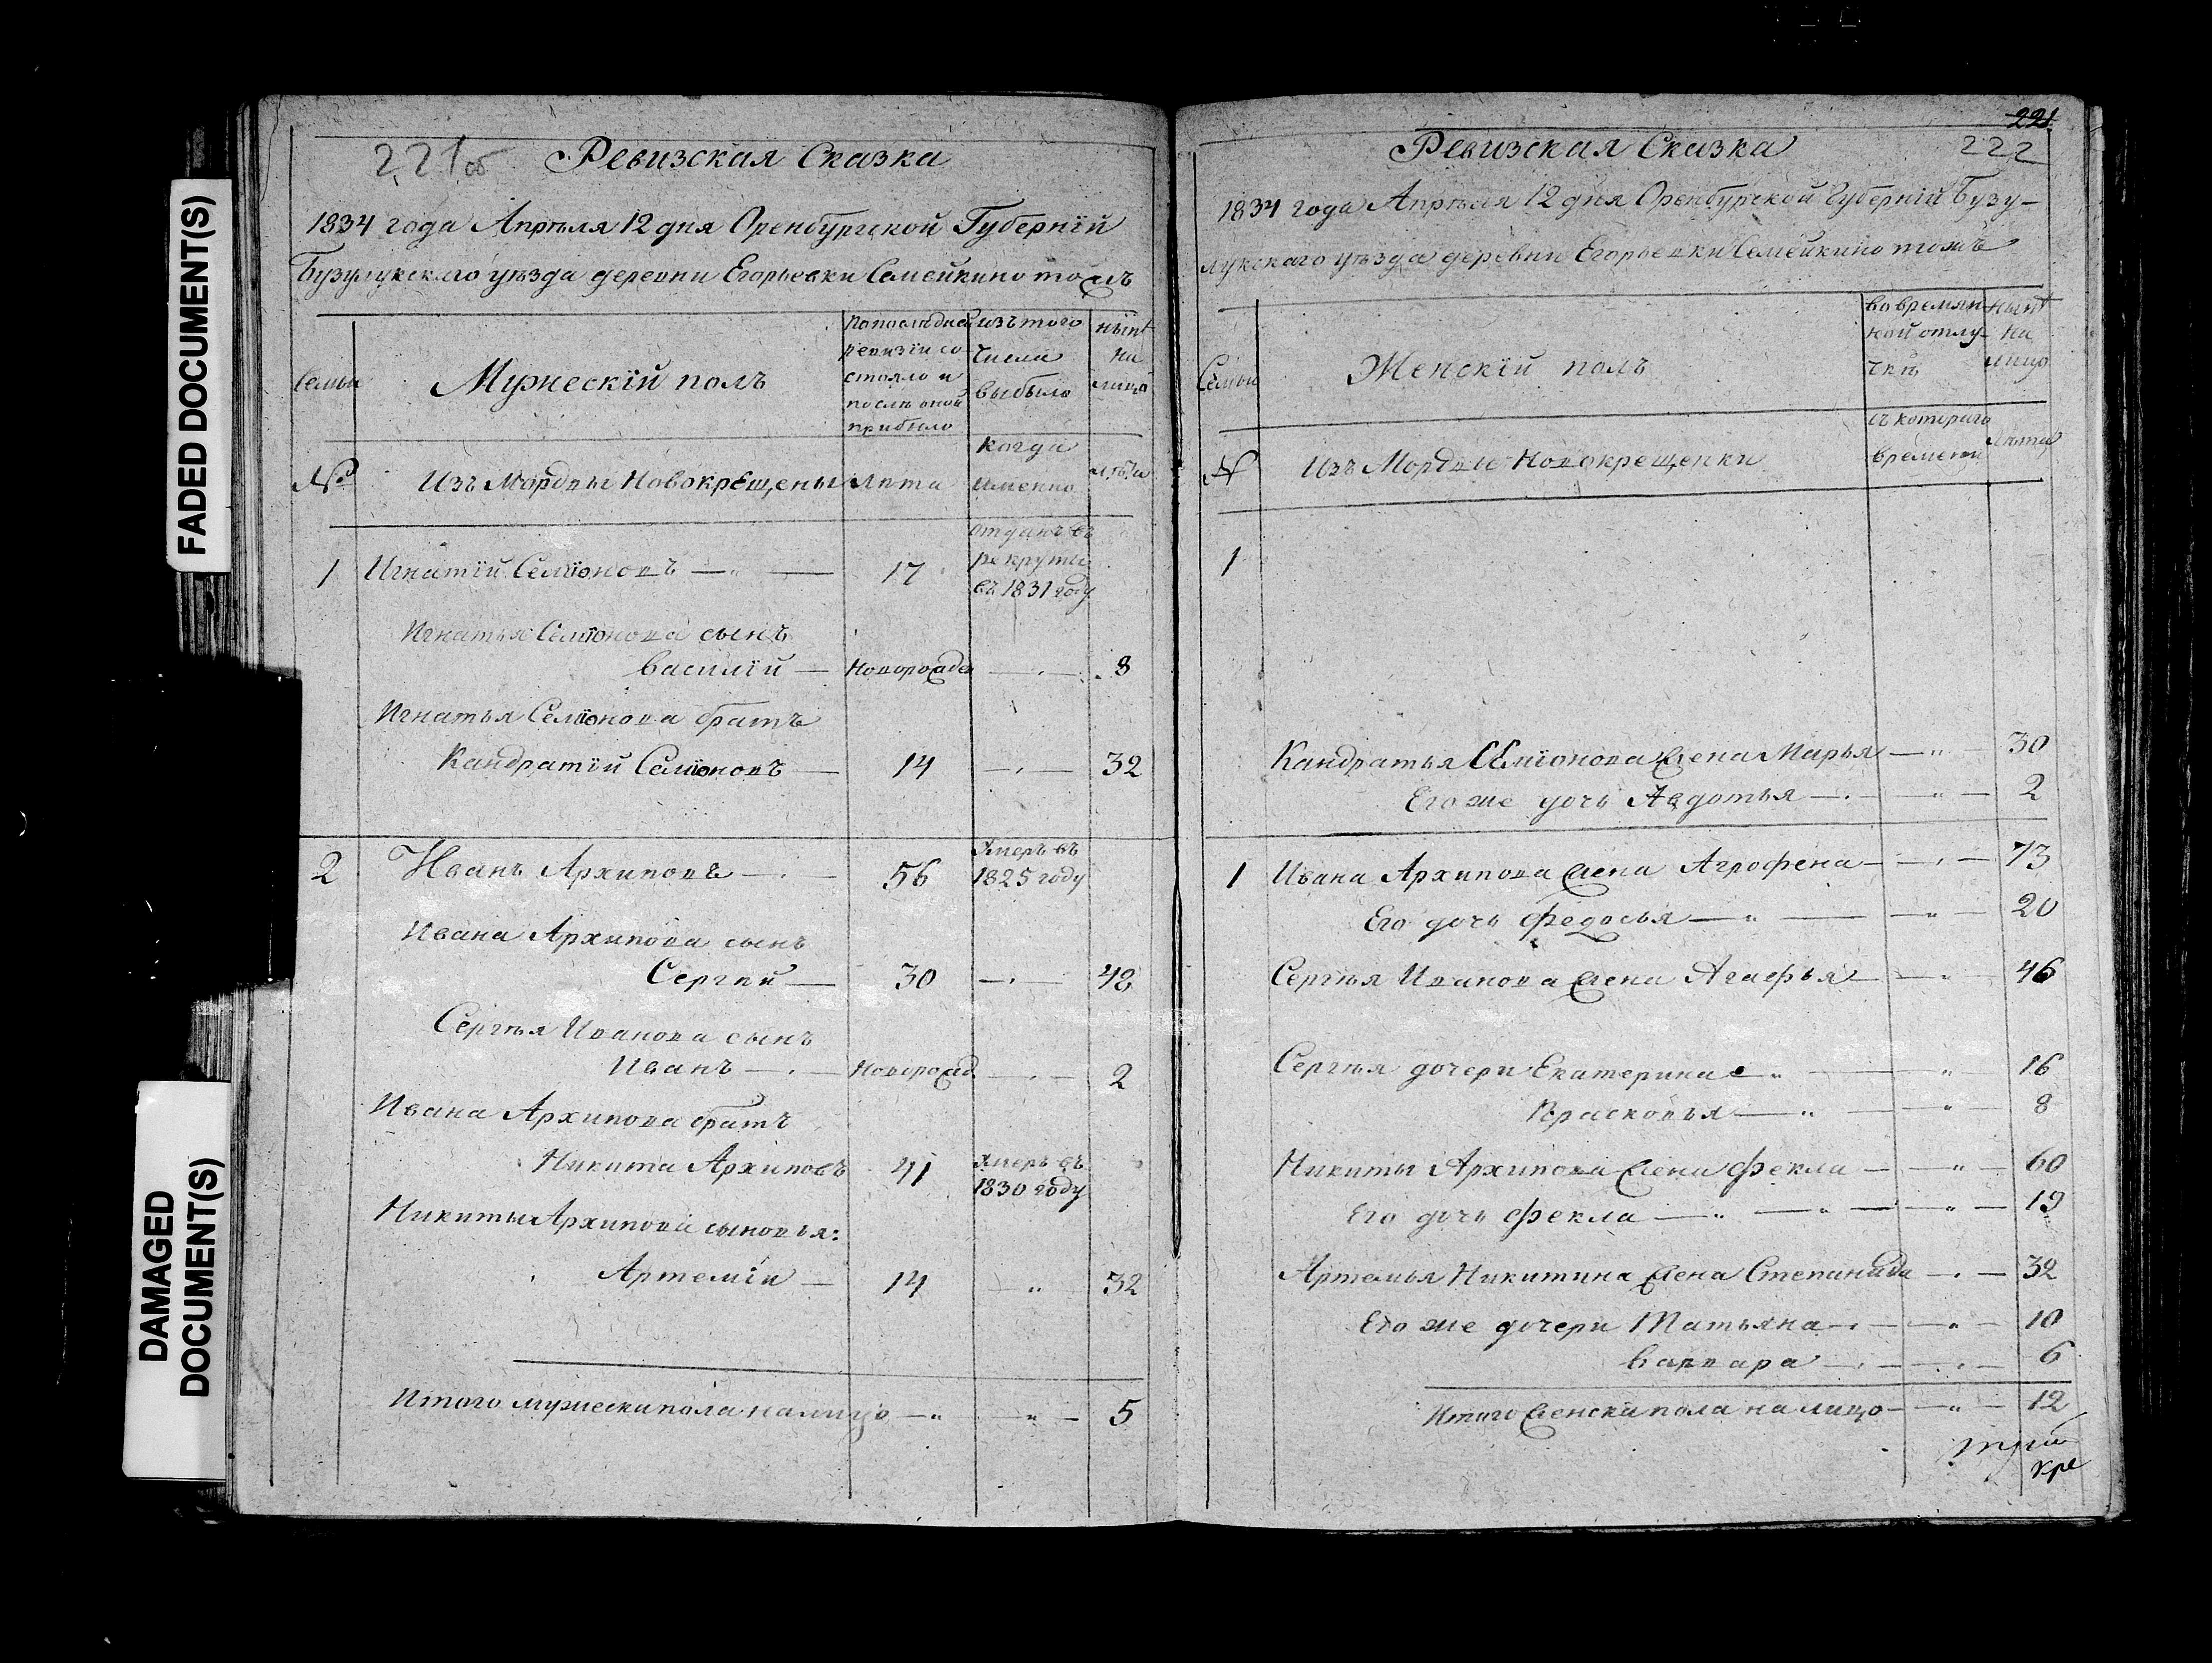 FADED DOCUMENT(S)
DAMAGED
DOCUMENT(S)
221об Ревизская Сказка
1834 года Апрѣля 12 дня Оренбургской Губернїй
Бузулукскаго уѣзда деревни Егорьевки Семейкино тожъ
Семьи
Мужескїй полъ
По последней
ревизїи со-
стояло и
послѣ оной
прибыло
изъ того
числа
выбыло
нынѣ
на
лицо
№
Изъ Мордвы Новокрещены
Лѣта
когда
именно
лѣта
1 Игнатїй Семїоновъ 17
отданъ въ
рекруты
въ 1831 году
Игнатья Семїонова сынъ
Василїй Новорожде 8
Игнатья Семїонова братъ
Кандратїй Семїоновъ 14 32
2 Иванъ Архиповъ 56
Умеръ въ
1825 году
Ивана Архипова сынъ
Сергѣй 30 48
Сергѣя Иванова сынъ
Иванъ Норорожд. 2
Ивана Архипова братъ
Никита Архиповъ 41
Умеръ въ
1830 году
Никиты Архипова сыновья:
Артемїй 14 32
Итого мужеска пола на лицо 5
221
222
Ревизская Сказка
1834 года Апрѣля 12 дня Оренбургской Губернїй Бузу-
лукскаго уѣзда деревни Егорьевки Семейкино тожъ
Семьи
Женскїй полъ
во времян-
ной отлу-
чкѣ
нынѣ
на
лицо
№
Изъ Мордвы Новокрещенки
съ котораго
времени
Лѣта
1
Кандратья Семїонова жена Марья 30
Его же дочь Авдотья 2
1 Ивана Архипова жена Агрофена 73
Его дочь Федосья 20
Сергѣя Иванова жена Агафья 46
Сергѣя дочери Екатерина 16
Прасковья 8
Никиты Архипова жена Фекла 60
Его дочь Фекла 19
Артемья Никитина жена Степанида 32
Его же дочери Татьяна 10
Варвара 6
Итого женска пола на лицо 12